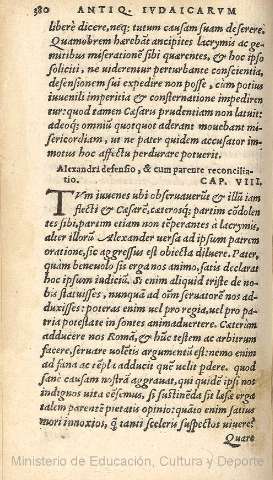 380 ANTIQ. IVDAICARVM
liberè dicere, neq; tutum causam suam deserere.
Quamobrem hærebāt ancipites lacrymis ac ge-
mitibus miserationē sibi quærentes, & hoc ipso
soliciti, ne viderentur perturbante conscientia,
defensionem sui expedire non posse, cùm potius
iuuenili imperitia & consternatione impediren
tur: quod tamen Cæsaris prudentiam non latuit:
adeoq; omniū quotquot aderant mouebant mi-
sericordiam, ut ne pater quidem accusator im-
motus hoc affectu perdurare potuerit.
Alexandri defensio, & cum parente reconcilia-
tio. CAP. VIII.
TVm iuuenes ubi obseruauerūt & illū iam
flecti & Cæsarē, cæterosq; partim cōdolen
tes sibi, partim etiam non tēperantes à lacrymis,
alter illorū Alexander versa ad ipsum patrem
oratione, sic aggressus est obiecta diluere. Pater,
quàm beneuolo sis erga nos animo, satis declarat
hoc ipsum iudiciū. Si enim aliquid triste de no-
bis statuisses, nunquā ad oīm seruatorē nos ad-
duxisses: poteras enim vel pro regia, vel pro pa-
tria potestate in sontes animaduertere. Cæterùm
adducere nos Romā, & hūc testem ac arbitrum
facere, seruare volētis argumentū est: nemo enim
ad fana ac tēpla adducit quē velit pdere. quod
sanè causam nostrā aggrauat, qui quidē ipsi nos
indignos vita cēsemus, si sustinēda sit læsæ erga
talem parentē pietatis opinio: quāto enim satius
mori innoxios, q̄ tanti sceleris suspectos viuere?
Quare
Ministerio de Educación, Cultura y Deporte